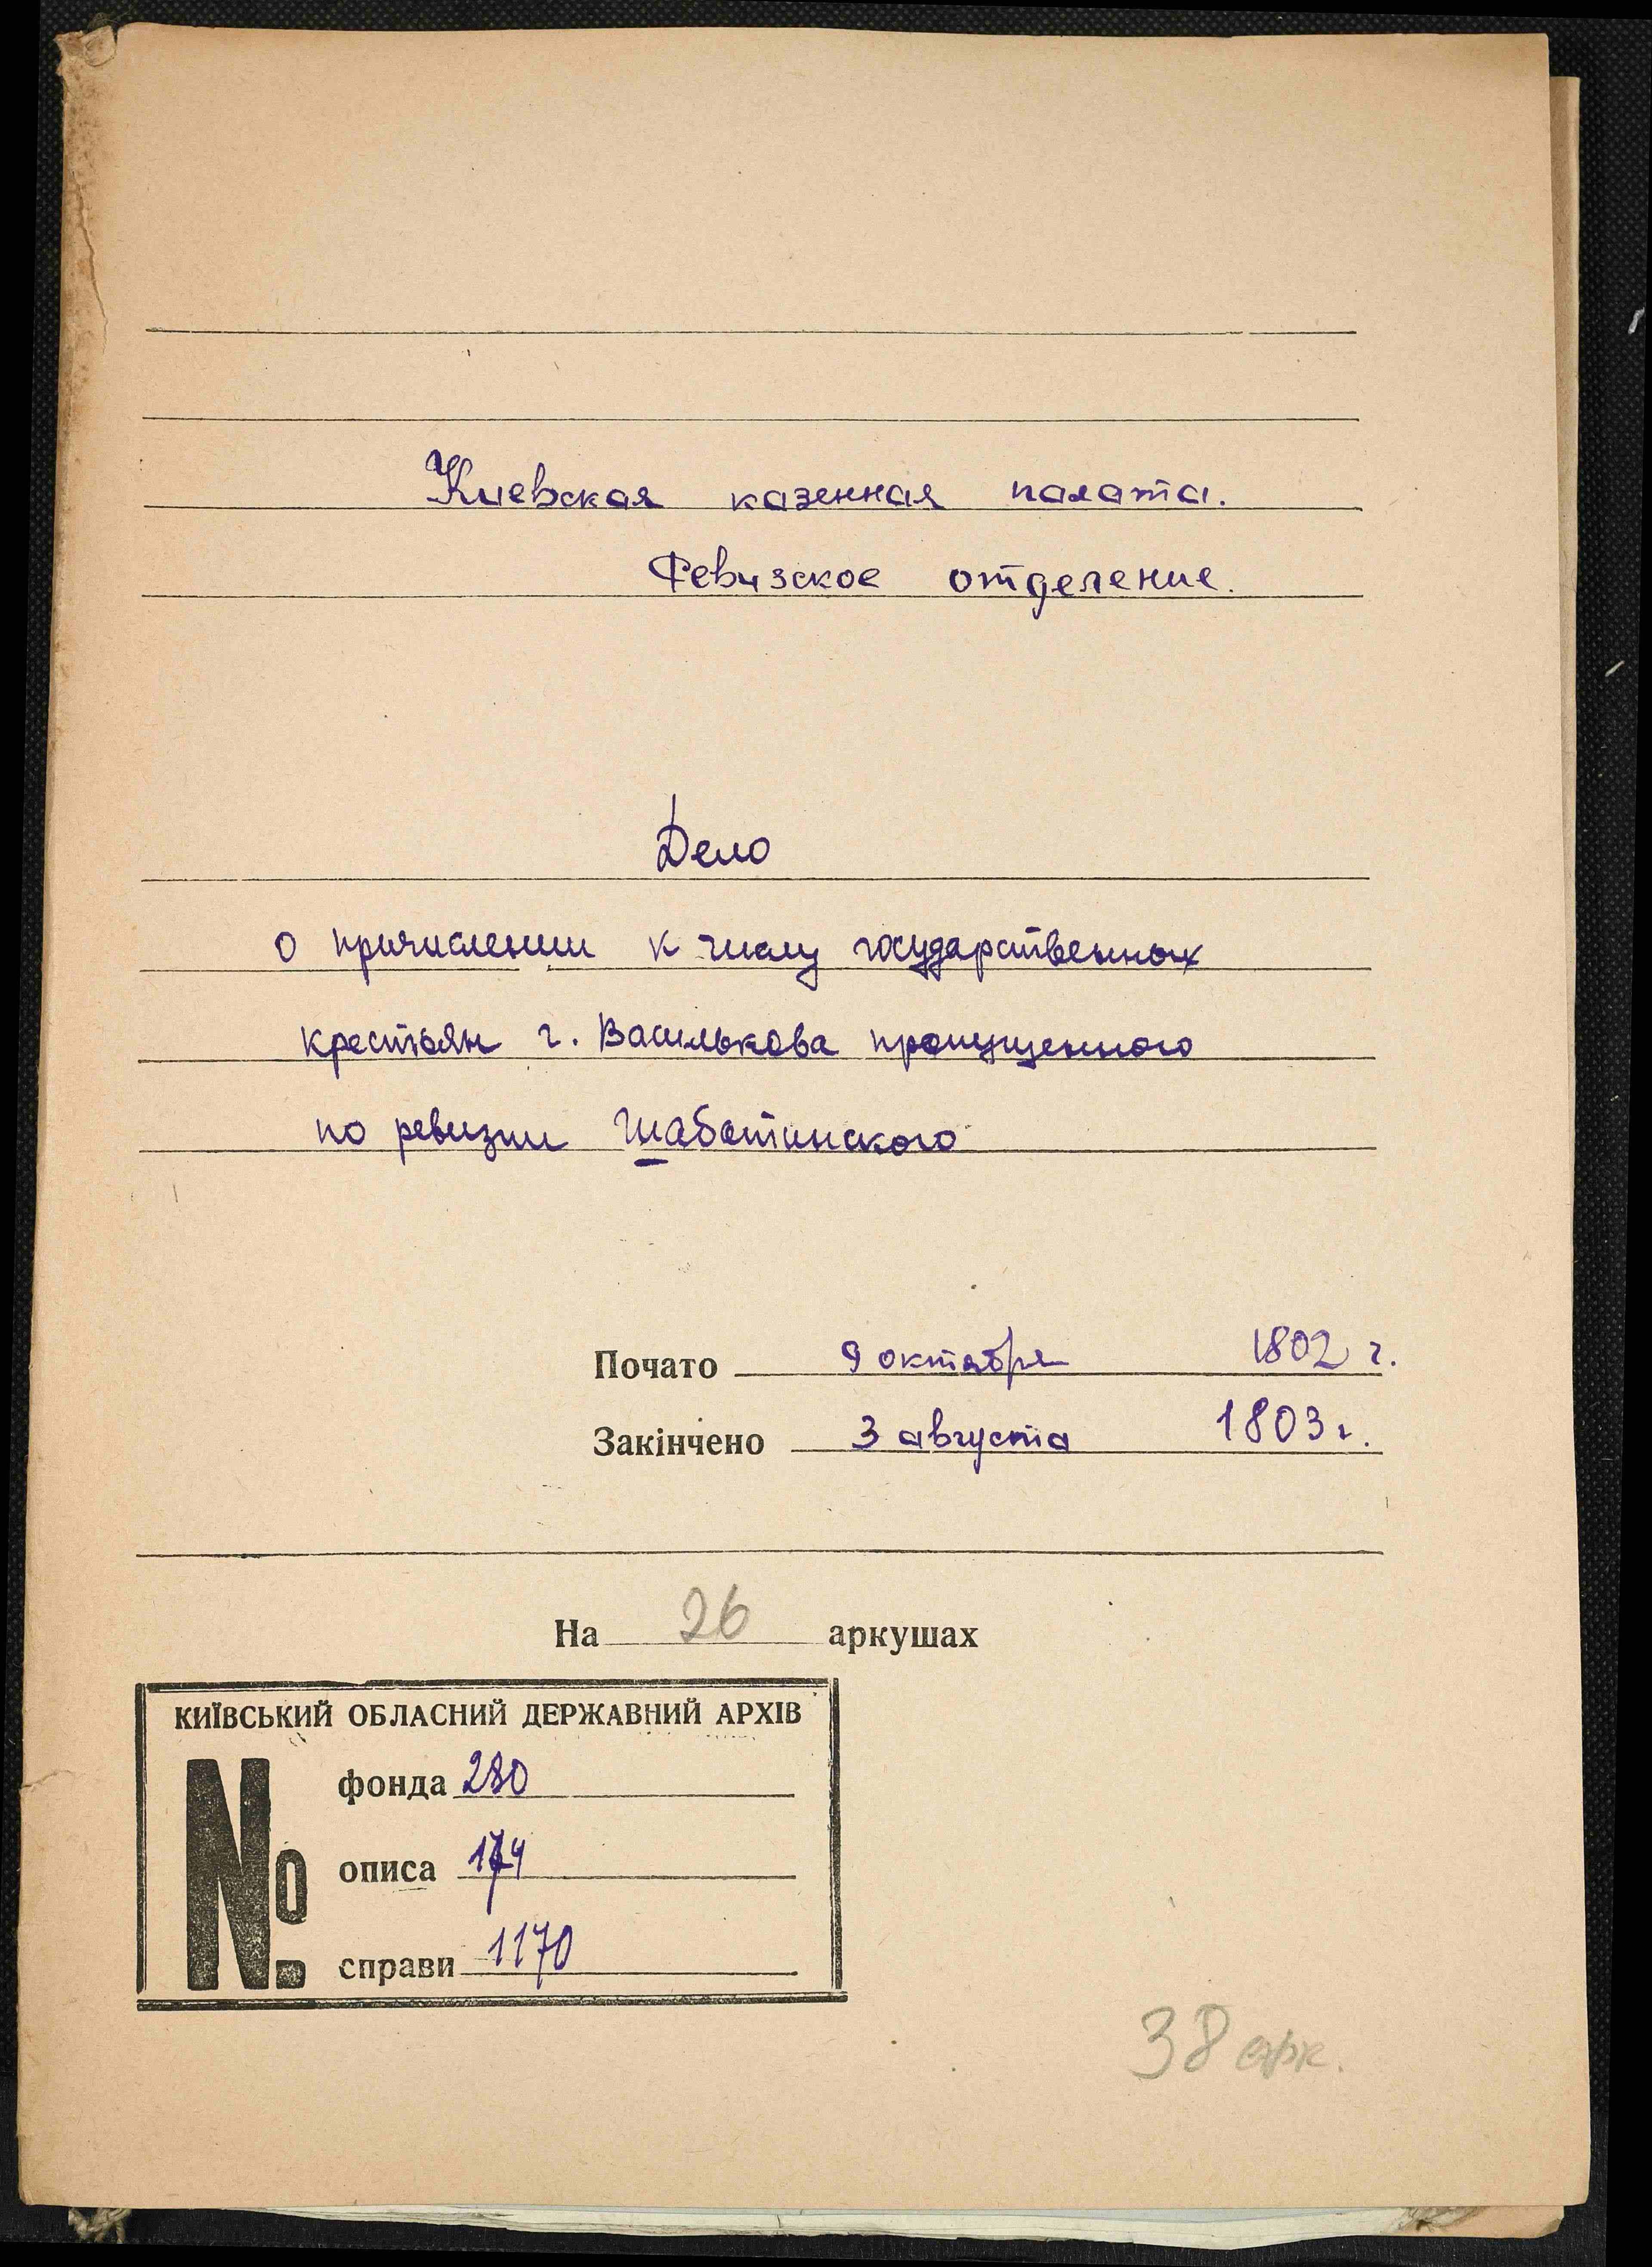 Киевская казенная палата.
Ревизское отделение.
Дело
о причислении к числу государственных
крестьян г. Василькова пропущенного
по ревизии Шаботинского
Почато 9 октября 1802 г.
Закінчено 3 августа 1803 г.
На 26 аркушах
КИЇВСЬКИЙ ОБЛАСНИЙ ДЕРЖАВНИЙ АРХІВ
№
фонда 280
описа 174
справи 1170
38 арк.